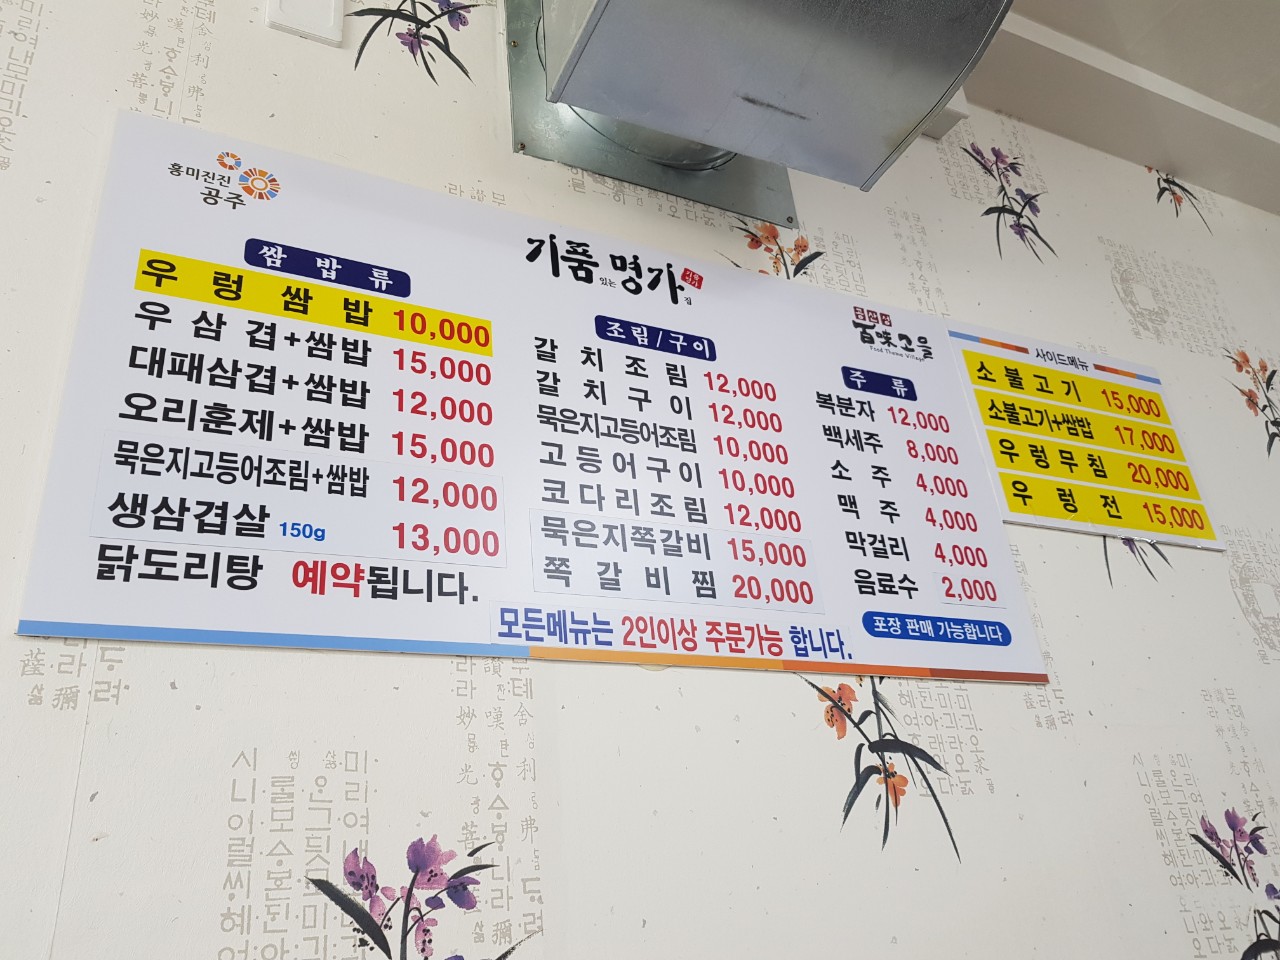 흥미진진
공주
기품있는 명가집
쌈밥류
우렁쌈밥 10,000
우삼겹+쌈밥 15,000
대패삼겹+쌈밥 12,000
오리훈제+쌈밥 15,000
묵은지고등어조림+쌈밥 12,000
생삼겹살 150g 13,000
닭도리탕 예약됩니다.
조림/구이
갈치조림 12,000
갈치구이 12,000
묵은지고등어조림 10,000
고등어구이 10,000
코다리조림 12,000
묵은지쪽갈비 15,000
쪽갈비찜 20,000
모든메뉴는 2인이상 주문가능 합니다.
百味고을
Food Theme Village
주류
복분자 12,000
백세주 8,000
소주 4,000
맥주 4,000
막걸리 4,000
음료수 2,000
포장 판매 가능합니다
사이드메뉴
소불고기 15,000
소불고기+쌈밥 17,000
우렁무침 20,000
우렁전 15,000